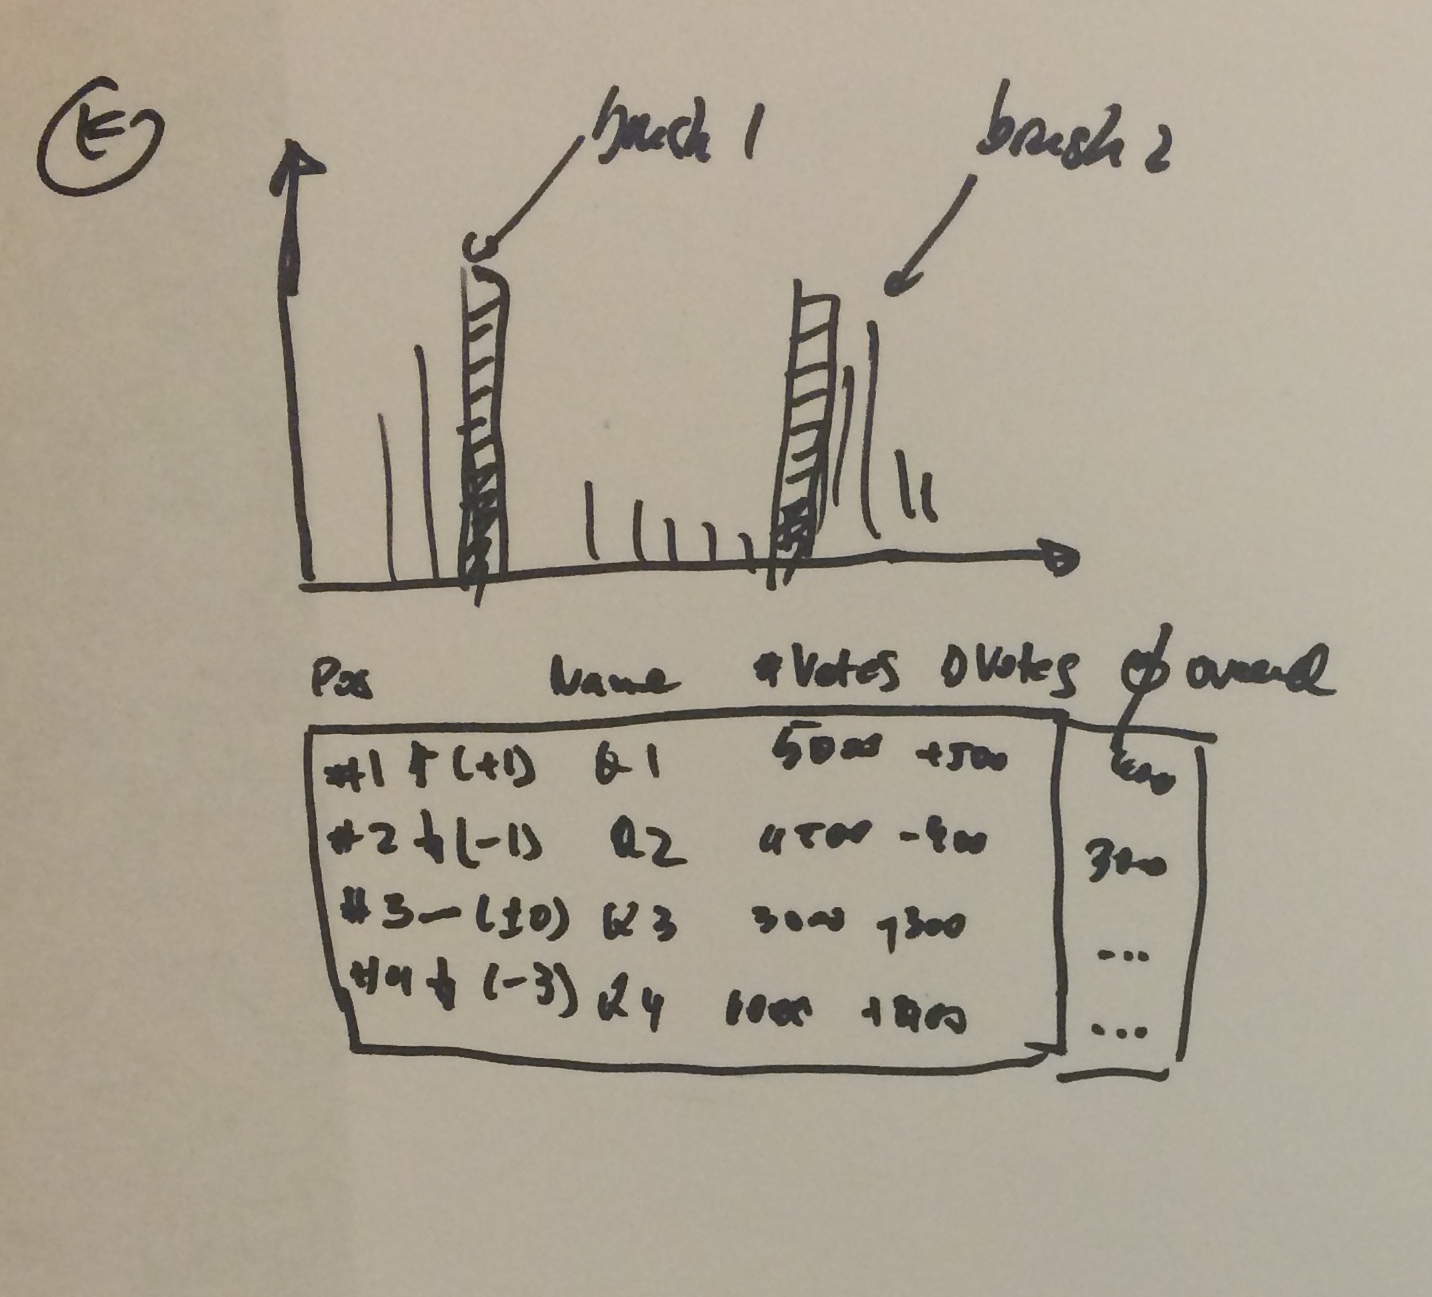 E
brush 1
brush 2
Pos Name #Votes DVotes Ø overal
#1 ↑ (+1) Q1 5000 +500
#2 ↓ (-1) Q2 4500 -400 3000
#3 — (±0) Q3 3000 +300 ...
#4 ↓ (-3) Q4 1000 ...